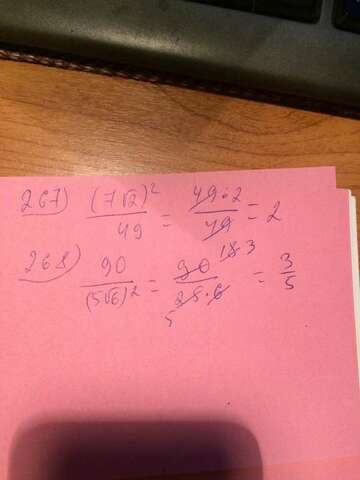 267) (7√2)² / 49 = 49·2 / 49 = 2
268) 90 / (5√6)² = 90 18 3 / 25·6 5 = 3/5